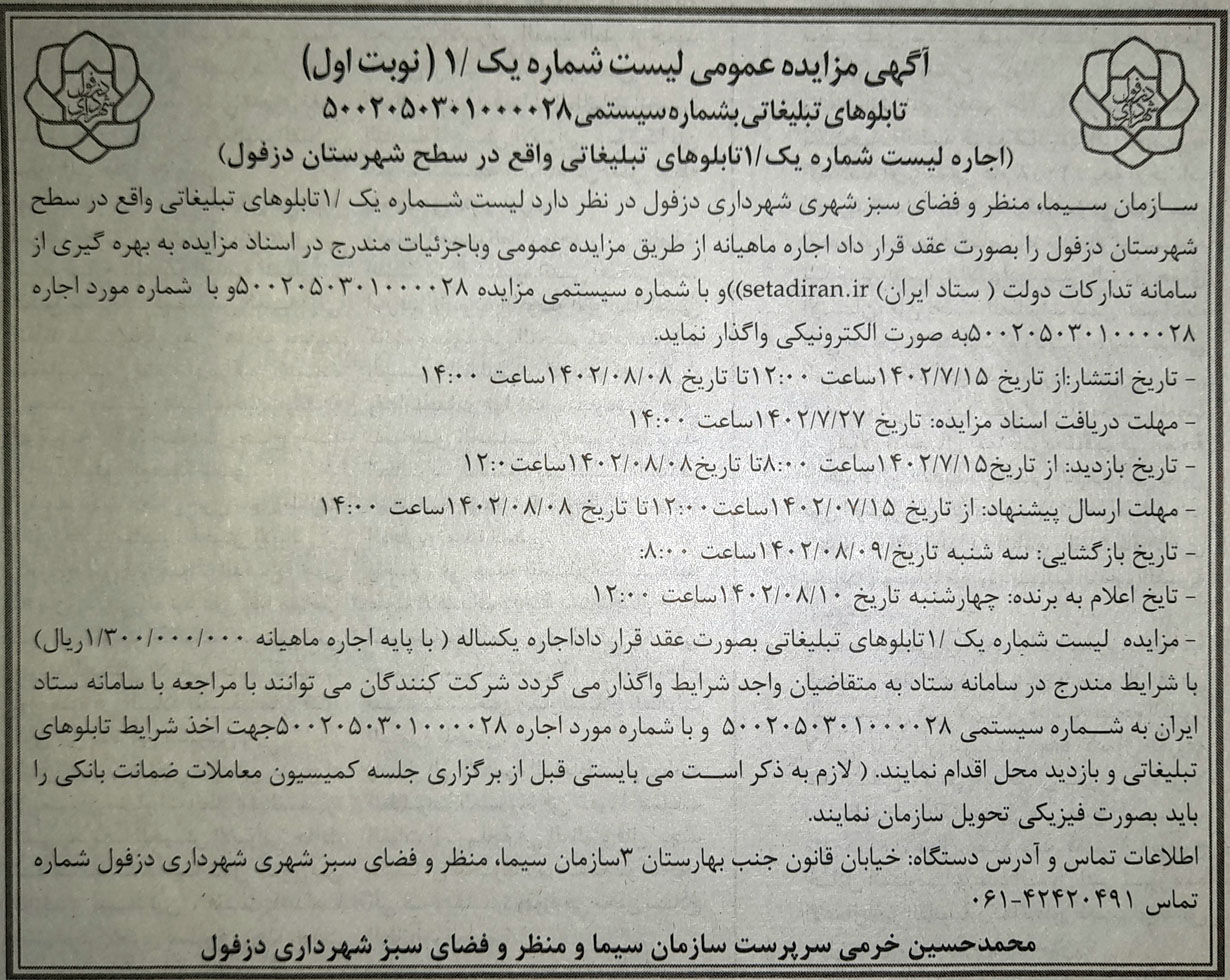 آگهی مزایده عمومی لیست شماره یک /۱ ( نوبت اول)
تابلوهای تبلیغاتی بشماره سیستمی ۵۰۰۲۰۵۰۳۰۱۰۰۰۰۲۸
(اجاره لیست شماره یک/۱تابلوهای تبلیغاتی واقع در سطح شهرستان دزفول)
شهرداری دزفول
شهرداری دزفول
سازمان سیما، منظر و فضای سبز شهری شهرداری دزفول در نظر دارد لیست شماره یک /۱تابلوهای تبلیغاتی واقع در سطح
شهرستان دزفول را بصورت عقد قرار داد اجاره ماهیانه از طریق مزایده عمومی وباجزئیات مندرج در اسناد مزایده به بهره گیری از
سامانه تدارکات دولت ( ستاد ایران) setadiran.ir))و با شماره سیستمی مزایده ۵۰۰۲۰۵۰۳۰۱۰۰۰۰۲۸و با شماره مورد اجاره
۵۰۰۲۰۵۰۳۰۱۰۰۰۰۲۸به صورت الکترونیکی واگذار نماید.
- تاریخ انتشار:از تاریخ ۱۴۰۲/۷/۱۵ساعت ۱۲:۰۰تا تاریخ ۱۴۰۲/۰۸/۰۸ساعت ۱۴:۰۰
- مهلت دریافت اسناد مزایده: تاریخ ۱۴۰۲/۷/۲۷ساعت ۱۴:۰۰
- تاریخ بازدید: از تاریخ۱۴۰۲/۷/۱۵ساعت ۸:۰۰تا تاریخ۱۴۰۲/۰۸/۰۸ساعت۱۲:۰
- مهلت ارسال پیشنهاد: از تاریخ ۱۴۰۲/۰۷/۱۵ساعت۱۲:۰۰تا تاریخ ۱۴۰۲/۰۸/۰۸ساعت ۱۴:۰۰
- تاریخ بازگشایی: سه شنبه تاریخ/۱۴۰۲/۰۸/۰۹ساعت ۸:۰۰:
- تایخ اعلام به برنده: چهارشنبه تاریخ ۱۴۰۲/۰۸/۱۰ساعت ۱۲:۰۰
- مزایده لیست شماره یک /۱تابلوهای تبلیغاتی بصورت عقد قرار داداجاره یکساله ( با پایه اجاره ماهیانه ۱/۳۰۰/۰۰۰/۰۰۰ریال)
با شرایط مندرج در سامانه ستاد به متقاضیان واجد شرایط واگذار می گردد شرکت کنندگان می توانند با مراجعه با سامانه ستاد
ایران به شماره سیستمی ۵۰۰۲۰۵۰۳۰۱۰۰۰۰۲۸ و با شماره مورد اجاره ۵۰۰۲۰۵۰۳۰۱۰۰۰۰۲۸جهت اخذ شرایط تابلوهای
تبلیغاتی و بازدید محل اقدام نمایند. ( لازم به ذکر است می بایستی قبل از برگزاری جلسه کمیسیون معاملات ضمانت بانکی را
باید بصورت فیزیکی تحویل سازمان نمایند.
اطلاعات تماس و آدرس دستگاه: خیابان قانون جنب بهارستان ۳سازمان سیما، منظر و فضای سبز شهری شهرداری دزفول شماره
تماس ۴۲۴۲۰۴۹۱-۰۶۱
محمدحسین خرمی سرپرست سازمان سیما و منظر و فضای سبز شهرداری دزفول